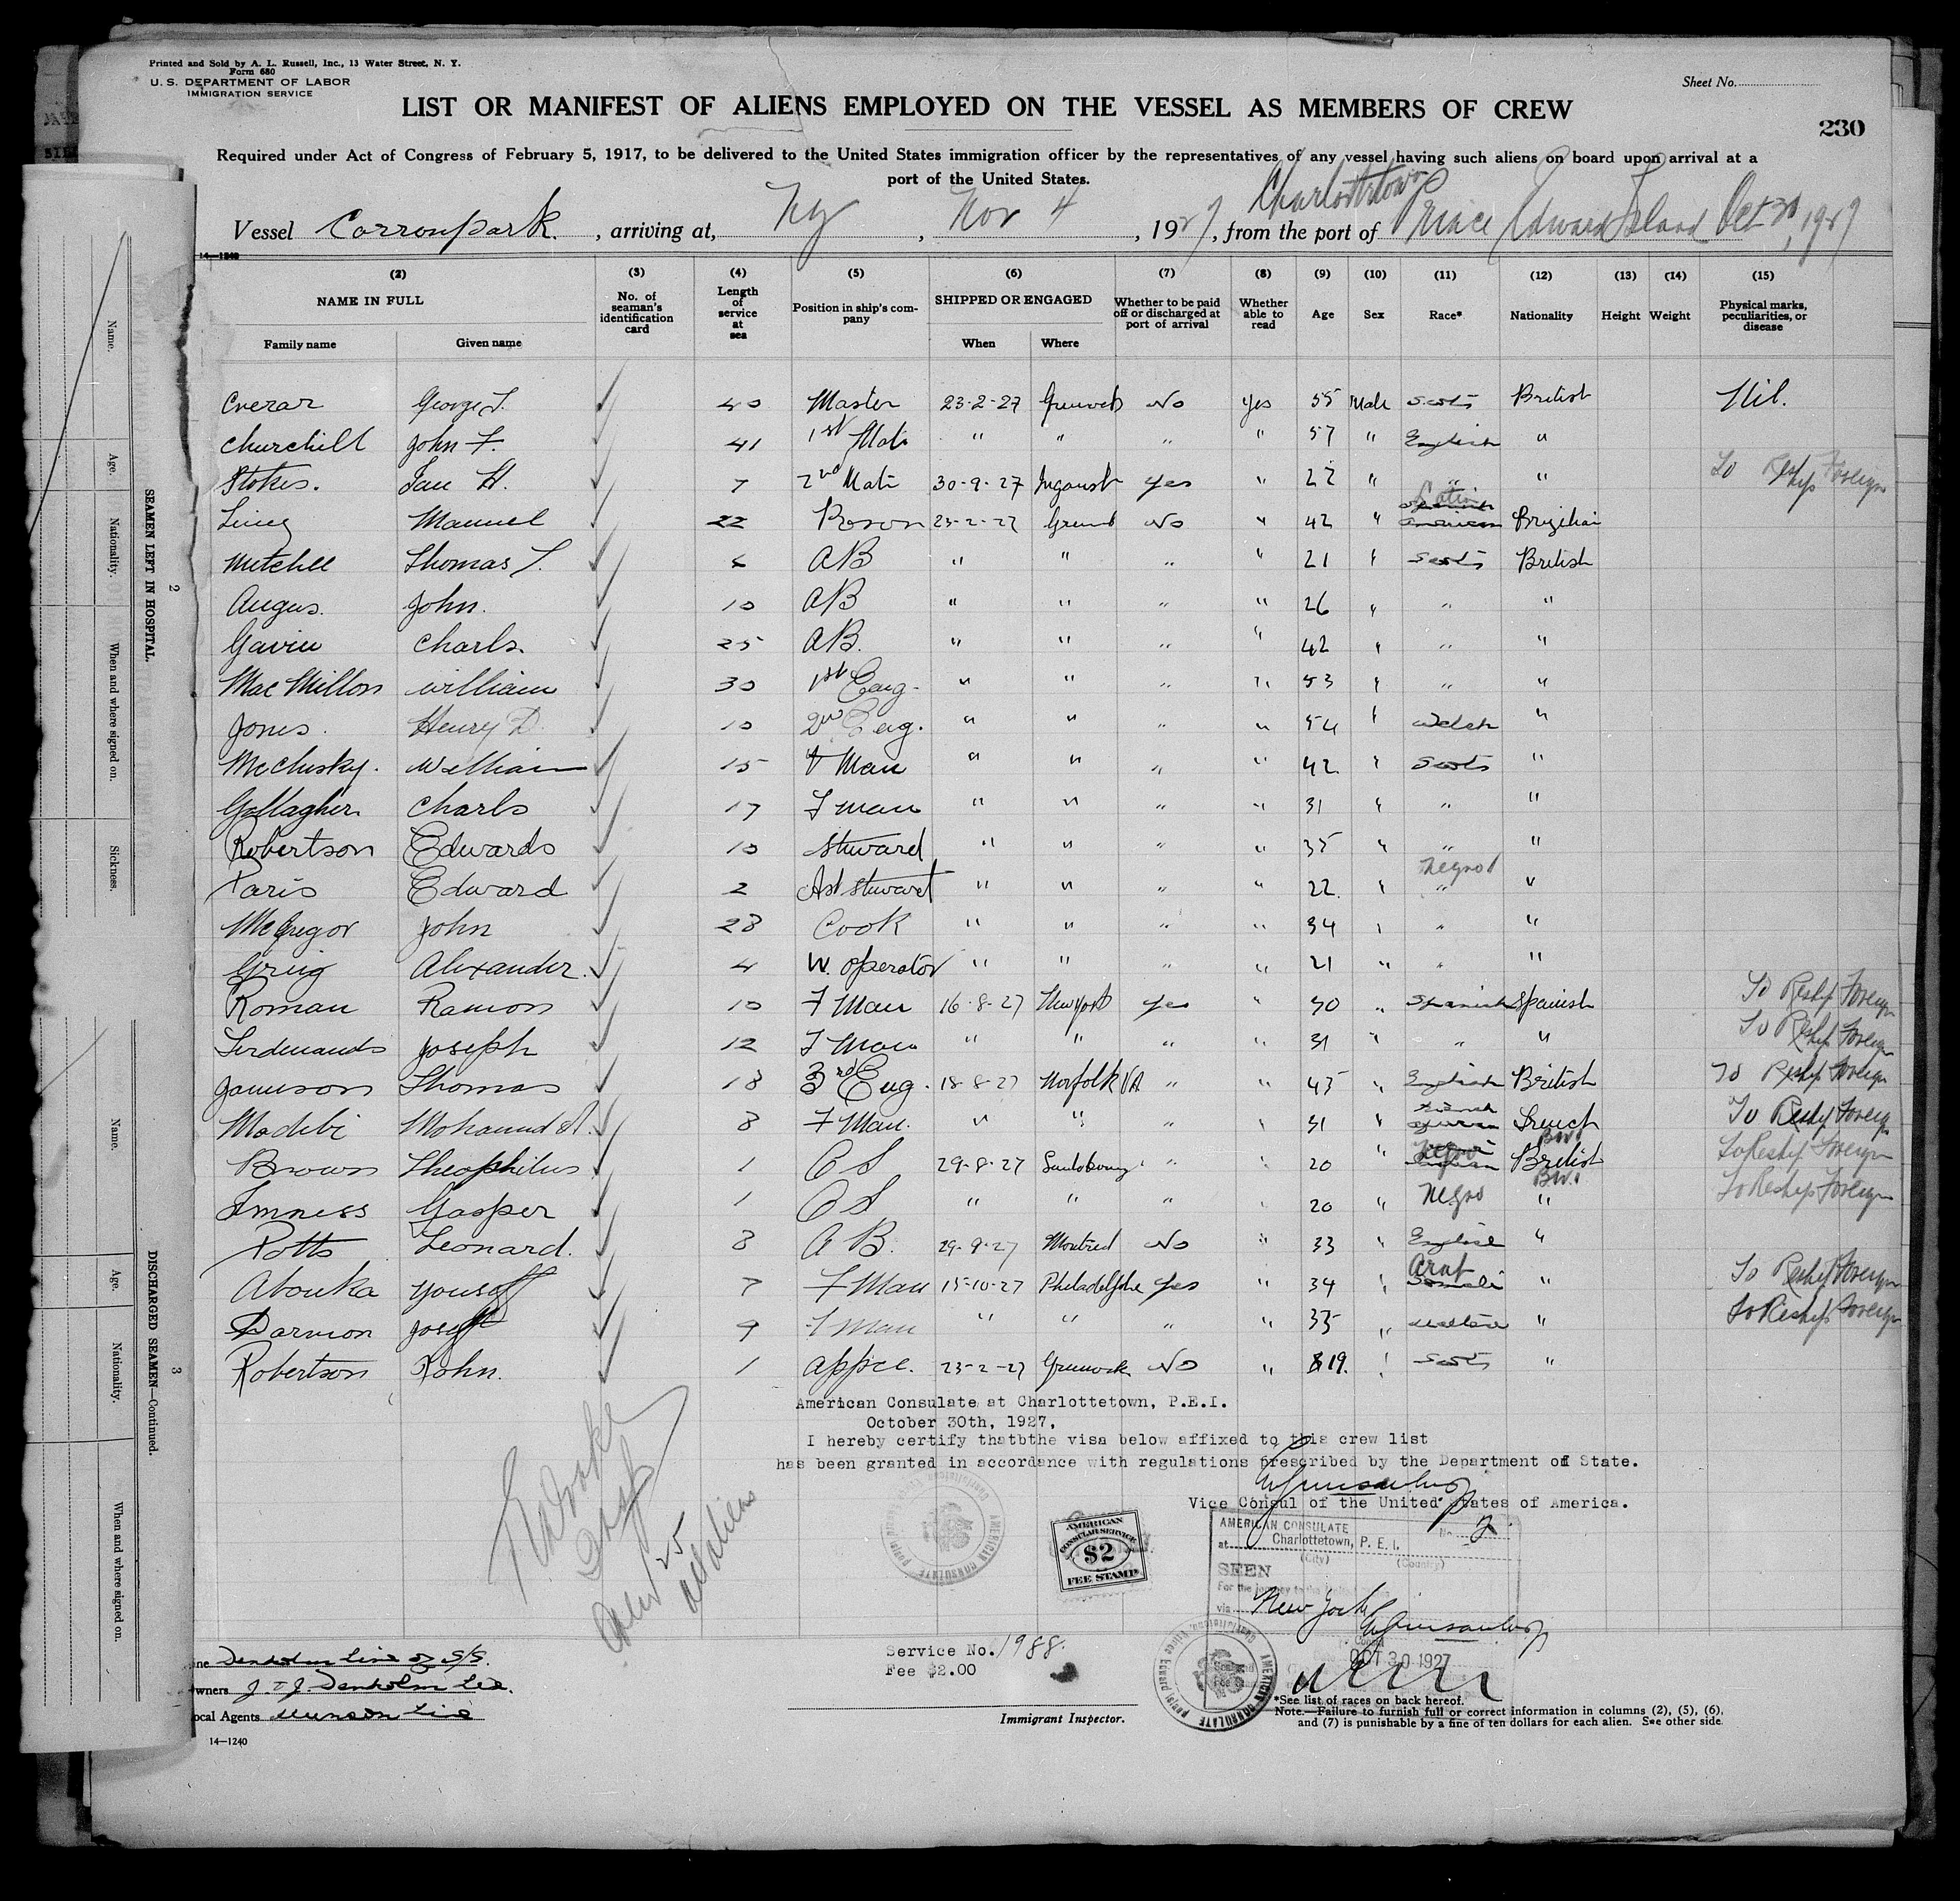 Printed and Sold by A. L. Russell, Inc., 13 Water Street, N. Y.
Form 680
U. S. DEPARTMENT OF LABOR
IMMIGRATION SERVICE
Sheet No.
LIST OR MANIFEST OF ALIENS EMPLOYED ON THE VESSEL AS MEMBERS OF CREW
230
Required under Act of Congress of February 5, 1917, to be delivered to the United States immigration officer by the representatives of any vessel having such aliens on board upon arrival at a
port of the United States.
Vessel Carronpark. , arriving at, NY , Nov 4 , 1927, from the port of Charlottetown Prince Edward Island Oct 30, 1927
14—1240
(2) (3) (4) (5) (6) (7) (8) (9) (10) (11) (12) (13) (14) (15)
NAME IN FULL No. of seaman's identification card Length of service at sea Position in ship's company SHIPPED OR ENGAGED Whether to be paid off or discharged at port of arrival Whether able to read Age Sex Race* Nationality Height Weight Physical marks, peculiarities, or disease
Family name Given name When Where
George 40 Master 23-2-27 No Yes 55 Male Scots British Nil.
Churchill John F. 41 1st Mate " " " " 57 " English "
Stokes. Ian H. 7 2nd Mate 30-9-27 Yes " 22 " " " To Reship Foreign
Manuel 22 23-2-27 No " 42 " Latin American
Mitchell Thomas 21 AB " " " " " Scots British
Angus. John. 10 AB " " " " 26 " " "
Gavin Charls. 25 AB. " " " " 42 " " "
MacMillon William 30 1st Eng. " " " " 53 " " "
Jones. Henry D. 10 2nd Eng. " " " " 54 " Welsh "
McClusky. William 15 F Man " " " " 42 " Scots "
Gallagher Charls 17 F man " " " " 31 " " "
Robertson Edwards 10 Steward " " " " 35 " " "
Paris Edward 2 Ast steward " " " " 22. " Negro "
McGregor John 28 Cook " " " " 34 " " "
Greig Alexander. 4 W. operator " " " " 21 " " "
Roman Ramon 10 F Man 16-8-27 Newport Yes " 30 " Spanish Spanish To Reship Foreign
Joseph 12 F Man " " " " 31 " " " To Reship Foreign
Jameson Thomas 18 3rd Eng. 18-8-27 Norfolk VA " " 43 " English British To Reship Foreign
Madibi 8 F Man. " " " " 31 " French To Reship Foreign
Brown Theophilus 1 OS 29-8-27 " " 20 " Negro British BWI To Reship Foreign
Gasper 1 OS " " " " 20 " Negro " BWI To Reship Foreign
Potts Leonard. 8 AB. 29-9-27 Montreal No " 33 " English "
Abouka Yousoff 7 F Man 15-10-27 Philadelphia Yes " 34 " Arab Somali " To Reship Foreign
Darmon 9 F Man " " " " 35 " Maltese " To Reship Foreign
Robertson 1 appce. 23-2-27 Greenock No " 19. " Scots "
American Consulate at Charlottetown, P.E.I.
October 30th, 1927,
I hereby certify thatbthe visa below affixed to this crew list
has been granted in accordance with regulations prescribed by the Department of State.
Vice Consul of the United States of America.
25
all aliens
AMERICAN CONSULAR SERVICE
$2
FEE STAMP
AMERICAN CONSULATE No. 2
at Charlottetown, P. E. I.
(City) (Country)
SEEN
For the journey to the United States
via New York
OCT 30 1927
AMERICAN CONSULATE
Service No. 1988.
Fee $2.00
Line Denholm Line of S/S.
Owners J. & J. Denholm Ltd.
Local Agents Munson Line
Immigrant Inspector.
*See list of races on back hereof.
Note.—Failure to furnish full or correct information in columns (2), (5), (6),
and (7) is punishable by a fine of ten dollars for each alien. See other side
14—1240
SEAMEN LEFT IN HOSPITAL.
2
Name.
Age.
Nationality.
When and where signed on.
Sickness.
DISCHARGED SEAMEN—Continued.
3
Name.
Age.
Nationality.
When and where signed on.